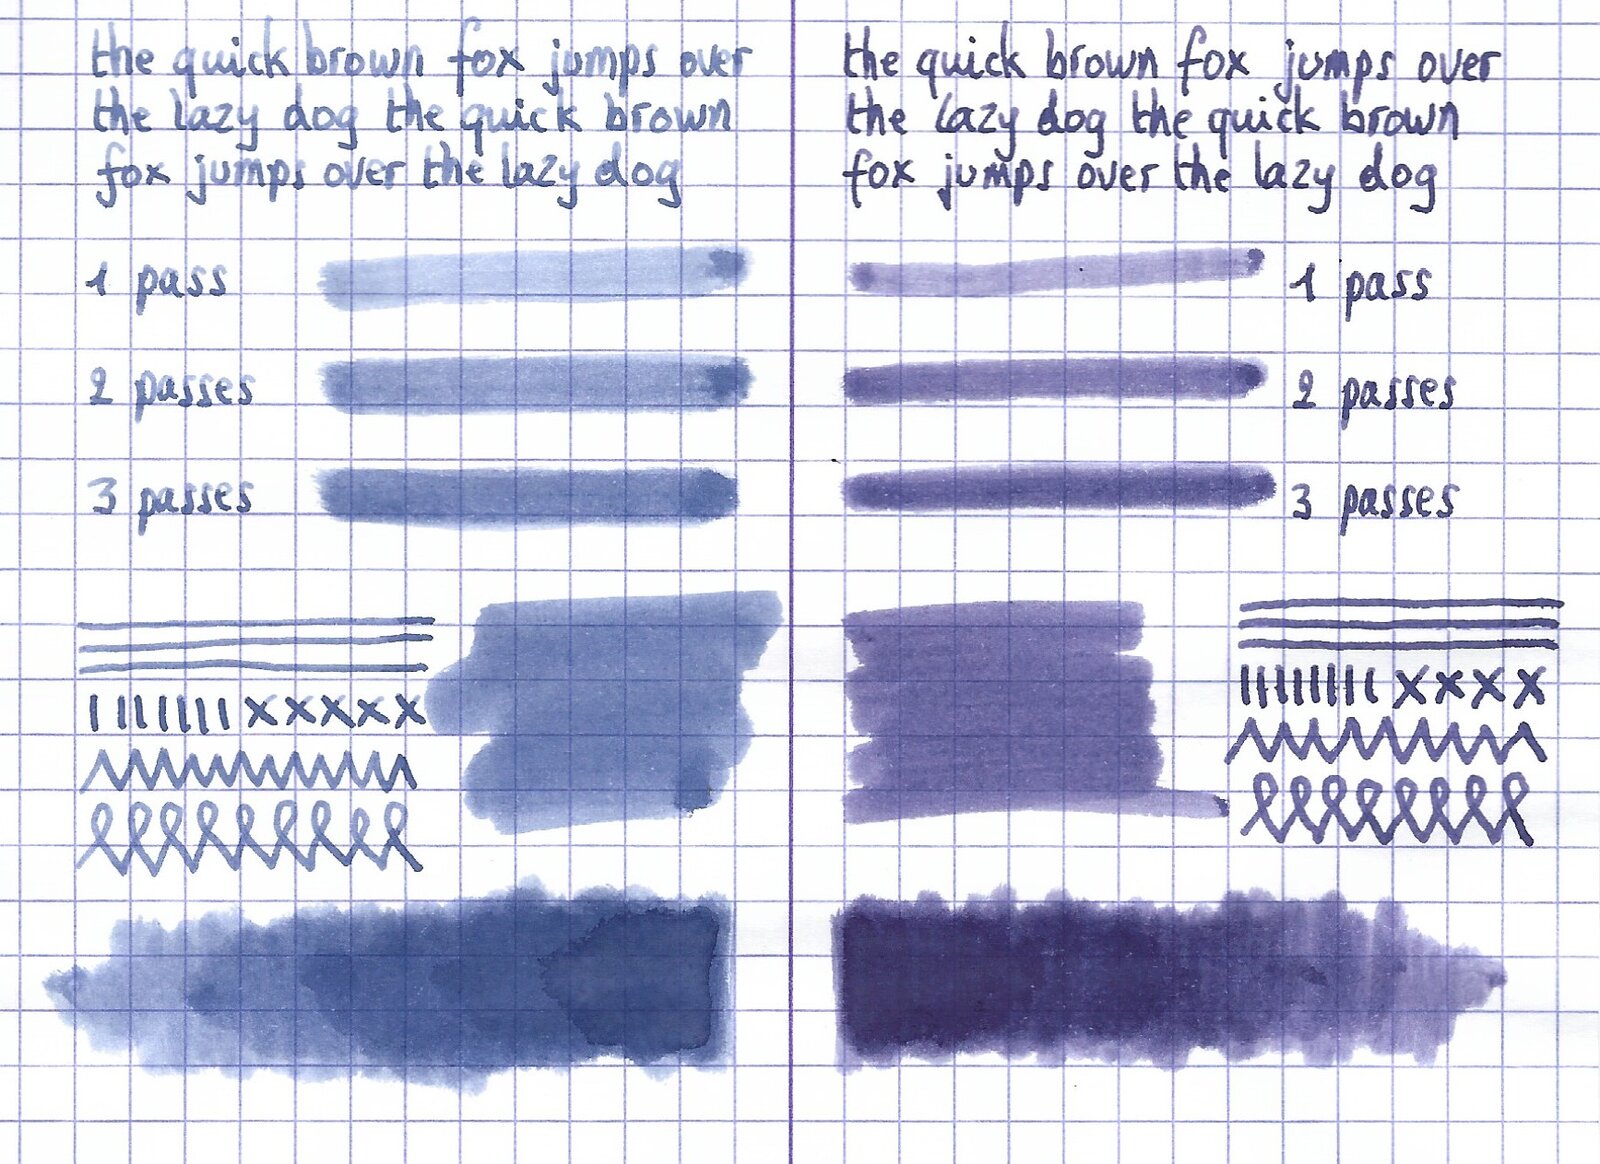 the quick brown fox jumps over
the lazy dog the quick brown
fox jumps over the lazy dog
1 pass
2 passes
3 passes
the quick brown fox jumps over
the lazy dog the quick brown
fox jumps over the lazy dog
1 pass
2 passes
3 passes
xxxxx
xxxx